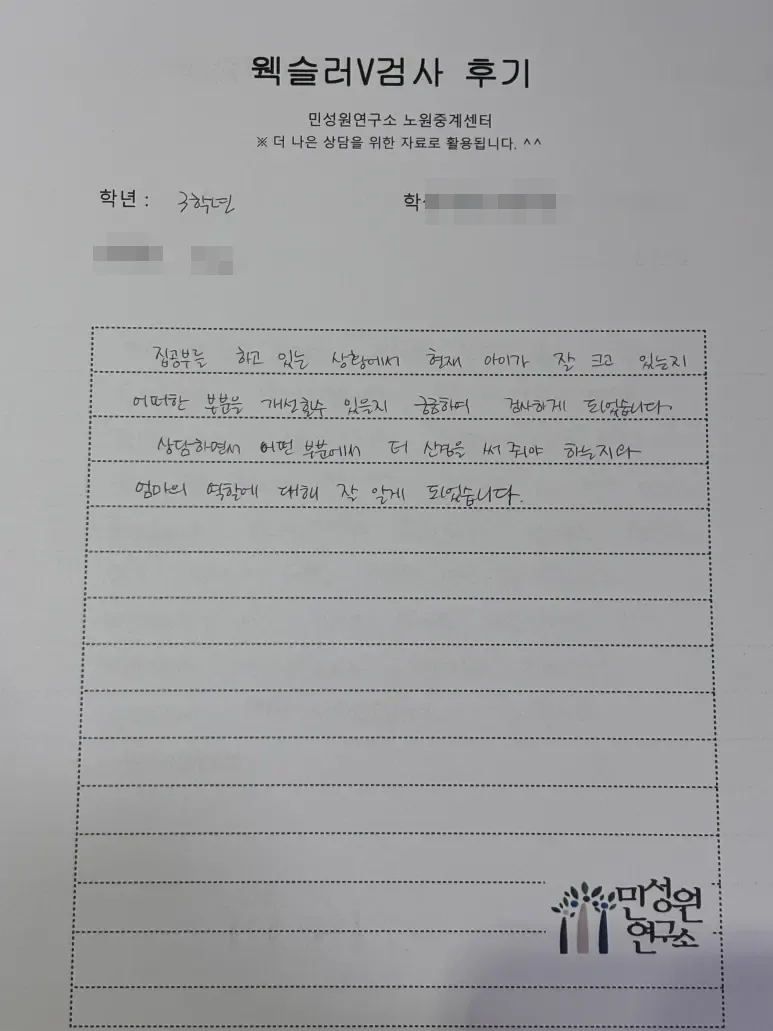 웩슬러V검사 후기
민성원연구소 노원중계센터
※ 더 나은 상담을 위한 자료로 활용됩니다. ^^
학년 : 3학년
집공부를 하고 있는 상황에서 현재 아이가 잘 크고 있는지
어떠한 부분을 개선할수 있을지 궁금하여 검사하게 되었습니다.
상담하면서 어떤 부분에서 더 신경을 써 줘야 하는지와
엄마의 역할에 대해 잘 알게 되었습니다.
민성원
연구소